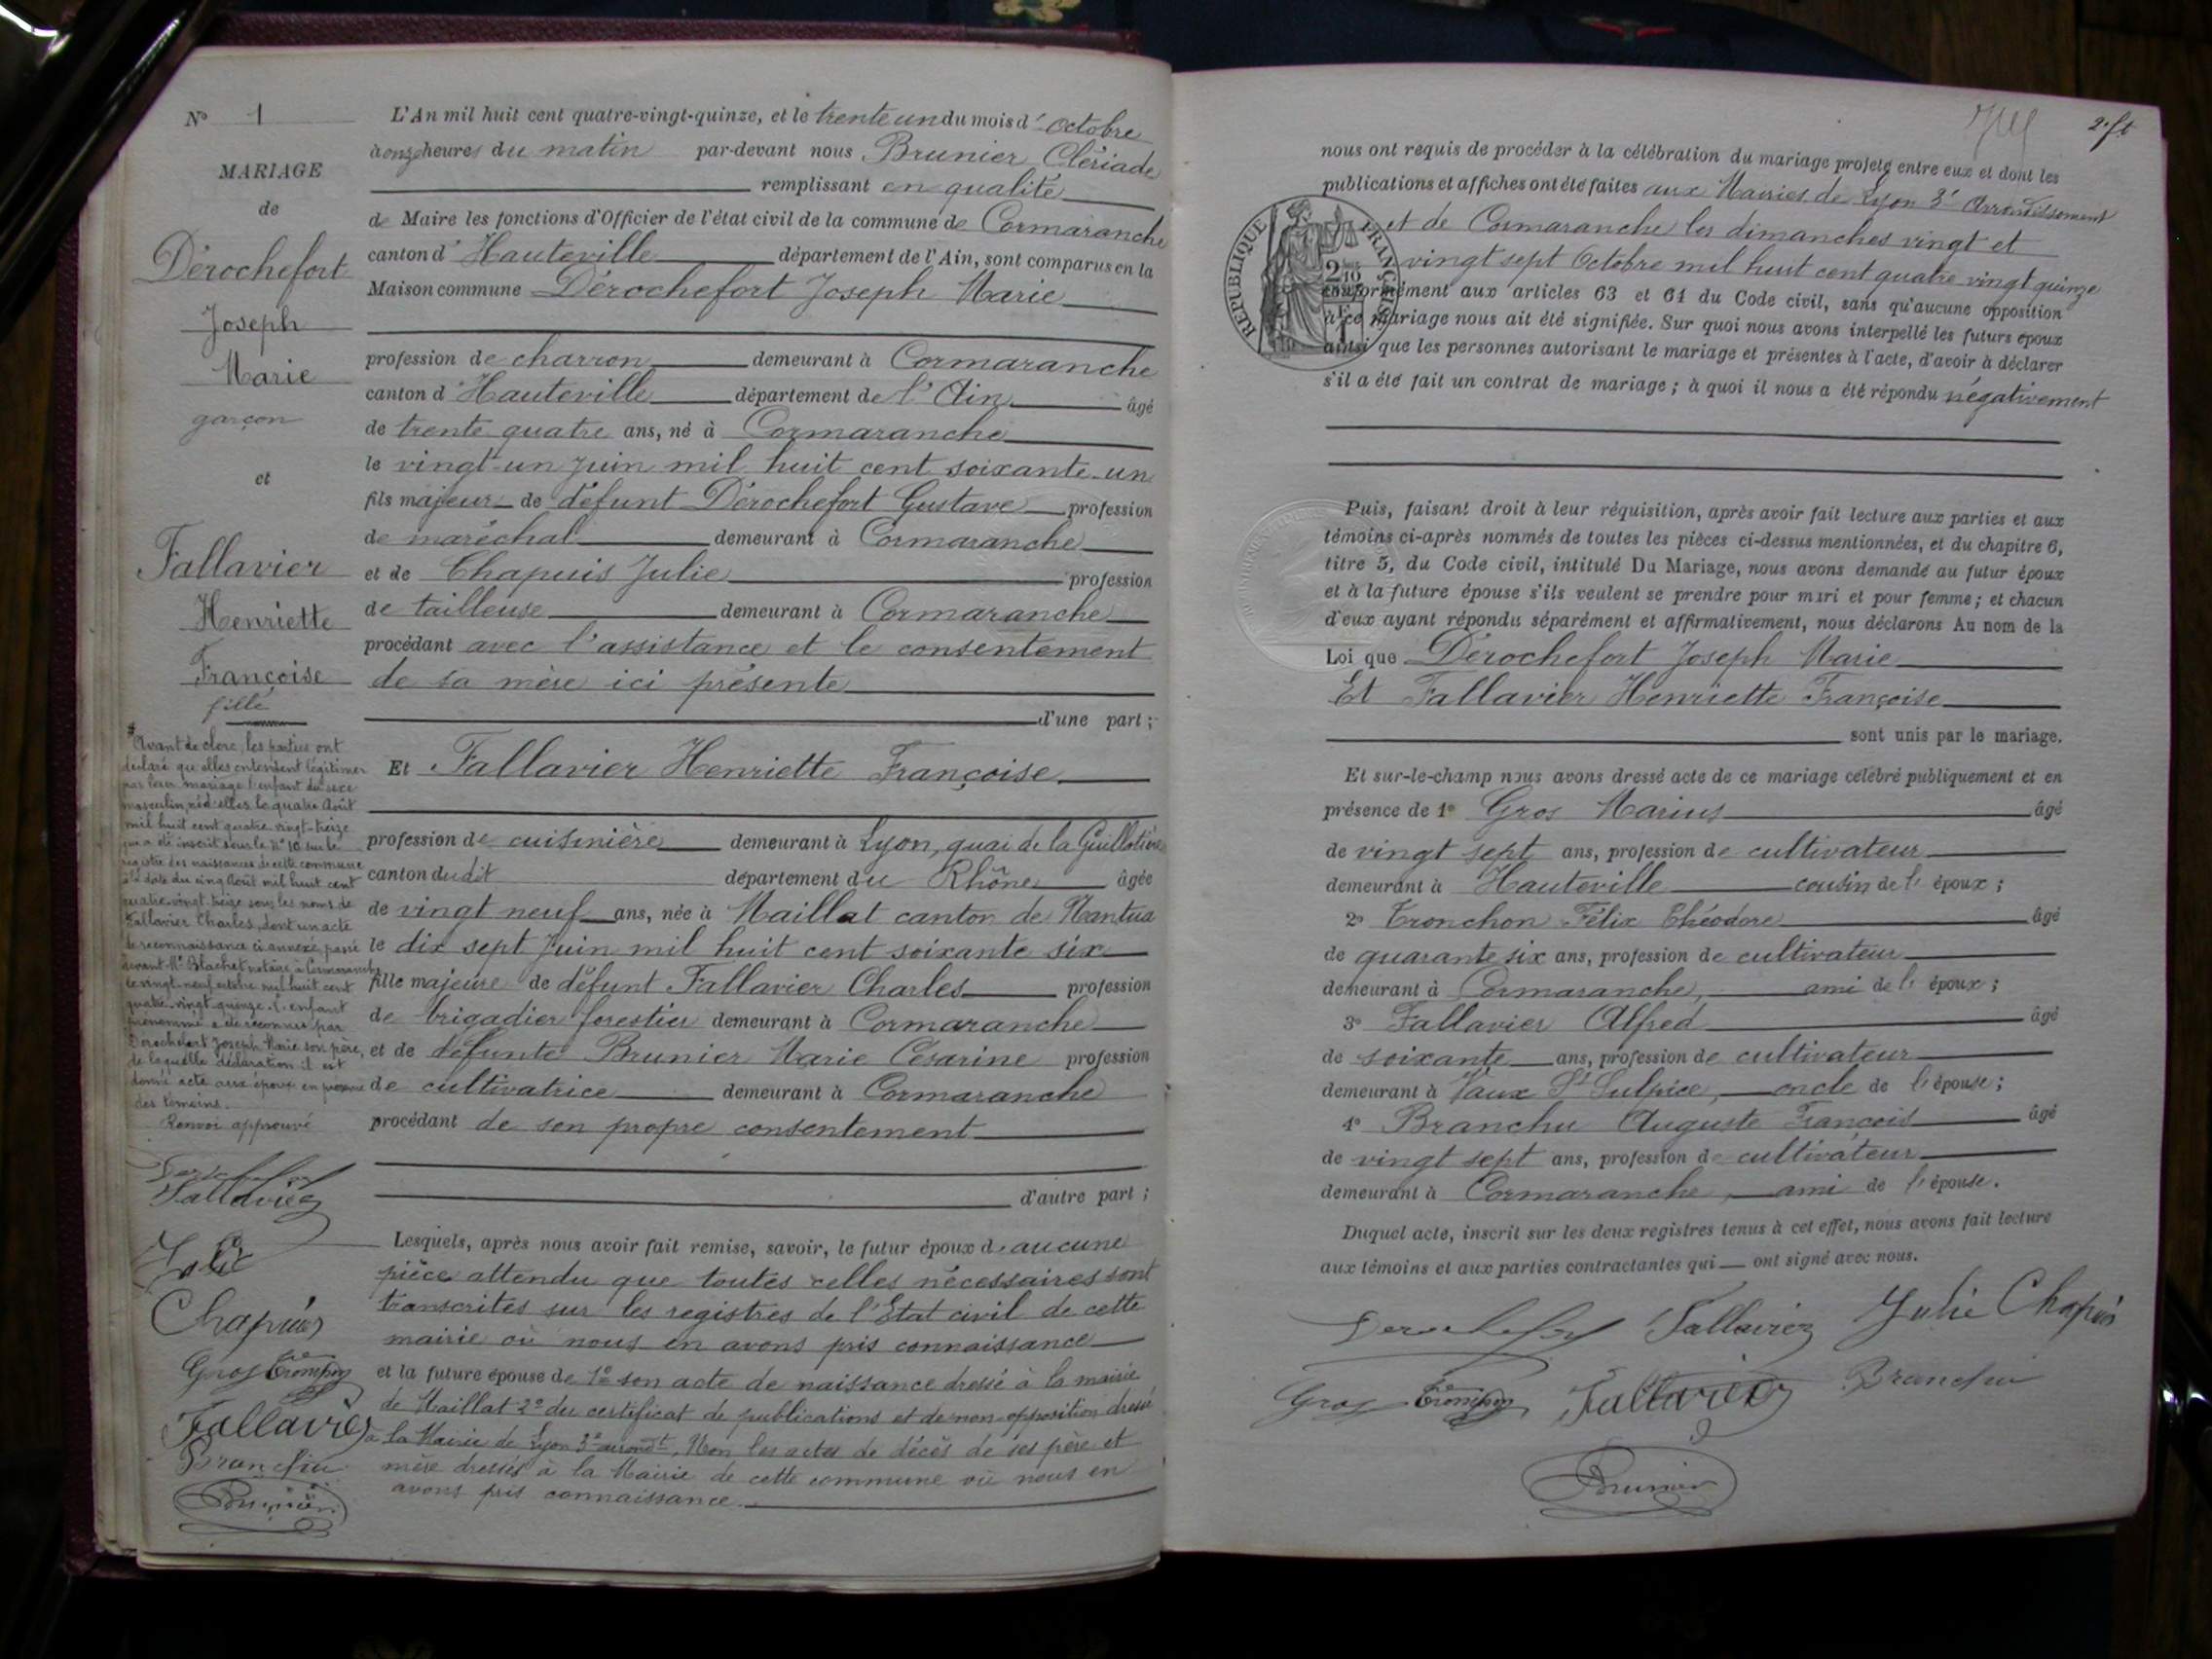 N° 1
MARIAGE
de
Dérochefort
Joseph
Marie
garçon
et
Fallavier
Henriette
Françoise
fille
Avant de clore, les parties ont
déclaré qu'elles entendent légitimer
par leur mariage l'enfant du sexe
masculin, né d'elles le quatre Août
mil huit cent quatre-vingt-treize
qui a été inscrit sous le N° 10 sur le
registre des naissances de cette commune
à la date du cinq Août mil huit cent
quatre-vingt-treize sous les noms de
Fallavier Charles, dont un acte
de reconnaissance ci annexé, passé
devant Me Blachet notaire à Cormaranche
le vingt-neuf octobre mil huit cent
quatre-vingt-quinze. L'enfant
prénommé a été reconnu par
Dérochefort Joseph Marie son père,
de laquelle déclaration il est
donné acte aux époux en présence
des témoins.
Renvoi approuvé
Derochefort
Fallavier
Julie
Chapuis
Gros Tronchon
Fallavier
Branchu
Brunier
L'An mil huit cent quatre-vingt-quinze, et le trente un du mois d'octobre
à onze heures du matin par-devant nous Brunier Clériade
remplissant en qualité
de Maire les fonctions d'Officier de l'état civil de la commune de Cormaranche
canton d'Hauteville département de l'Ain, sont comparus en la
Maison commune Dérochefort Joseph Marie
profession de charron demeurant à Cormaranche
canton d'Hauteville département de l'Ain âgé
de trente quatre ans, né à Cormaranche
le vingt-un Juin mil huit cent soixante-un
fils majeur de défunt Dérochefort Gustave profession
de maréchal demeurant à Cormaranche
et de Chapuis Julie profession
de tailleuse demeurant à Cormaranche
procédant avec l'assistance et le consentement
de sa mère ici présente
d'une part ;
Et Fallavier Henriette Françoise
profession de cuisinière demeurant à Lyon, quai de la Guillotière
canton dudit département du Rhône âgée
de vingt neuf ans, née à Maillat canton de Nantua
le dix sept Juin mil huit cent soixante six
fille majeure de défunt Fallavier Charles profession
de brigadier forestier demeurant à Cormaranche
et de défunte Brunier Marie Césarine profession
de cultivatrice demeurant à Cormaranche
procédant de son propre consentement
d'autre part ;
Lesquels, après nous avoir fait remise, savoir, le futur époux d'aucune
pièce attendu que toutes celles nécessaires sont
transcrites sur les registres de l'Etat civil de cette
mairie où nous en avons pris connaissance
et la future épouse de 1° son acte de naissance dressé à la mairie
de Maillat 2° du certificat de publications et de non-opposition dressé
à la Mairie de Lyon 3e arrondt. Non les actes de décès de ses père et
mère dressés à la Mairie de cette commune où nous en
avons pris connaissance.
2. ft
nous ont requis de procéder à la célébration du mariage projeté entre eux et dont les
publications et affiches ont été faites aux Mairies de Lyon 3e Arrondissement
et de Cormaranche les dimanches vingt et
vingt sept Octobre mil huit cent quatre vingt quinze
conformément aux articles 63 et 64 du Code civil, sans qu'aucune opposition
à ce mariage nous ait été signifiée. Sur quoi nous avons interpellé les futurs époux
ainsi que les personnes autorisant le mariage et présentes à l'acte, d'avoir à déclarer
s'il a été fait un contrat de mariage ; à quoi il nous a été répondu négativement
RÉPUBLIQUE FRANÇAISE
Puis, faisant droit à leur réquisition, après avoir fait lecture aux parties et aux
témoins ci-après nommés de toutes les pièces ci-dessus mentionnées, et du chapitre 6,
titre 5, du Code civil, intitulé Du Mariage, nous avons demandé au futur époux
et à la future épouse s'ils veulent se prendre pour mari et pour femme ; et chacun
d'eux ayant répondu séparément et affirmativement, nous déclarons Au nom de la
Loi que Dérochefort Joseph Marie
Et Fallavier Henriette Françoise
sont unis par le mariage.
Et sur-le-champ nous avons dressé acte de ce mariage célébré publiquement et en
présence de 1° Gros Marius âgé
de vingt sept ans, profession de cultivateur
demeurant à Hauteville cousin de l'époux ;
2° Tronchon Félix Théodore âgé
de quarante six ans, profession de cultivateur
demeurant à Cormaranche, ami de l'époux ;
3° Fallavier Alfred âgé
de soixante ans, profession de cultivateur
demeurant à Vaux St Sulpice, oncle de l'épouse ;
4° Branchu Auguste François âgé
de vingt sept ans, profession de cultivateur
demeurant à Cormaranche, ami de l'épouse.
Duquel acte, inscrit sur les deux registres tenus à cet effet, nous avons fait lecture
aux témoins et aux parties contractantes qui ont signé avec nous.
Derochefort Fallavier Julie Chapuis
Gros Tronchon Fallavier Branchu
Brunier